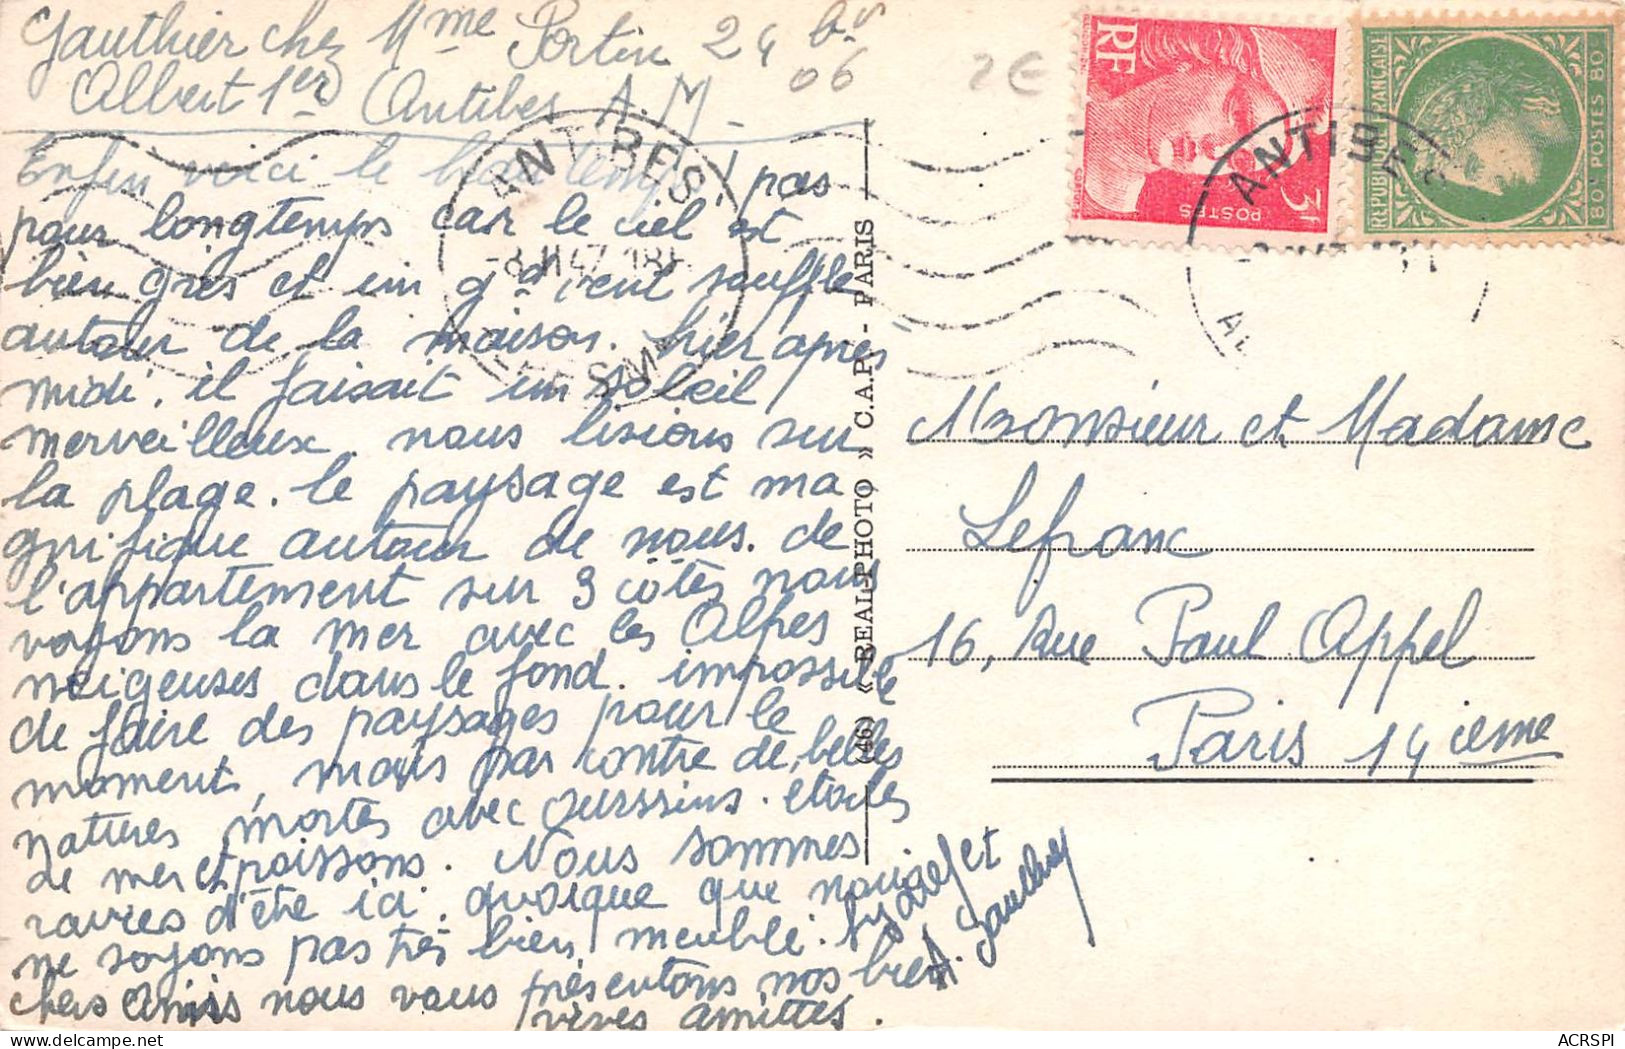 Gauthier chez Mme Portin 24 bv
06
Albert 1er Antibes A.M.
2€
Enfin voici le beau temps! pas
pour longtemps car le ciel est
bien gris et un gd vent souffle
autour de la maison. hier après
midi. il faisait un soleil
merveilleux. nous lisions sur
la plage. le paysage est ma
gnifique autour de nous. de
l'appartement sur 3 côtés nous
voyons la mer avec les Alpes
neigeuses dans le fond. impossible
de faire des paysages pour le
moment, mais par contre de belles
natures mortes avec oursins. etoiles
de mer et poissons. Nous sommes
ravies d'être ici. quoique que nous
ne soyons pas très bien meublé.
chers amis nous vous présentons nos bien
vives amitiés.
et
A. Gauthier
ANTIBES
-8 II 47 18H
(46) « REAL-PHOTO » C.A.P. - PARIS
RF
POSTES
3f
REPUBLIQUE FRANÇAISE
80c POSTES 80c
ANTIBES
Monsieur et Madame
Lefranc
16, Rue Paul Appel
Paris 14ieme
ACRSPI